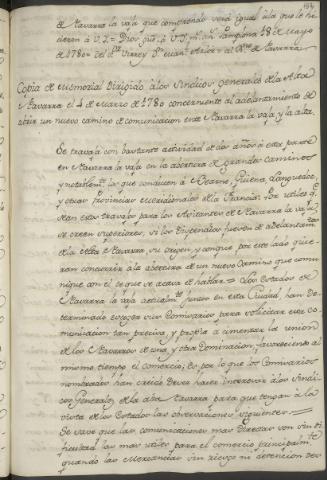 de Navarra la vaja que comprendo verá igual à la que le di-
dieron à V.S. = Dios gue à V.S. ms as Pamplona 18 de Mayo
de 1780 = del Sr Virrey Dn
Copia de memorial dirigido à los Sindicos generales de la Alta
Navarra el 4 de Marzo de 1780 concerniente al adelantamiento de
abrir un nuevo camino de comunicacion entre Navarra la vaja y la alta.
Se travaja con bastante actividad de los años à esta parte
en Navarra la vaja en la abertura de grandes caminos
y notablemte los que conducen à Bearne, Guiena, Languedoc,
y otras provincias meridionales de la Francia. Por utiles q.
sean estos travajos para los Avitantes de Navarra la vaja,
se creen superiores, si los Diputados fuesen de adelantamto
de la Alta Navarra, su origen, y aunque por este lado quie-
ran concurrir à la abertura de un nuevo Camino que comu-
nique con el que se acava de hablar = Los Estados de
Navarra la vaja actualmte juntos en esta Ciudad, han de-
terminado escoger seis Comisarios para solicitar esta co-
municacion tan precisa, y propia à cimentar la union
de los Navarros de una y otra Dominacion, favoreciendo al
mismo tiempo el comercio; Es por lo que los Comisarios
nombrados han creido dever hacer interesar à los Sindi-
cos Generales de la Alta Navarra para que tengan à la
vista de los Estados las observaciones siguientes. =
Se save que las comunicaciones mas directas son sin di-
ficultad las mas utiles para el comercio principalmte
quando las Mercancias sin riesgo ni detencion de-